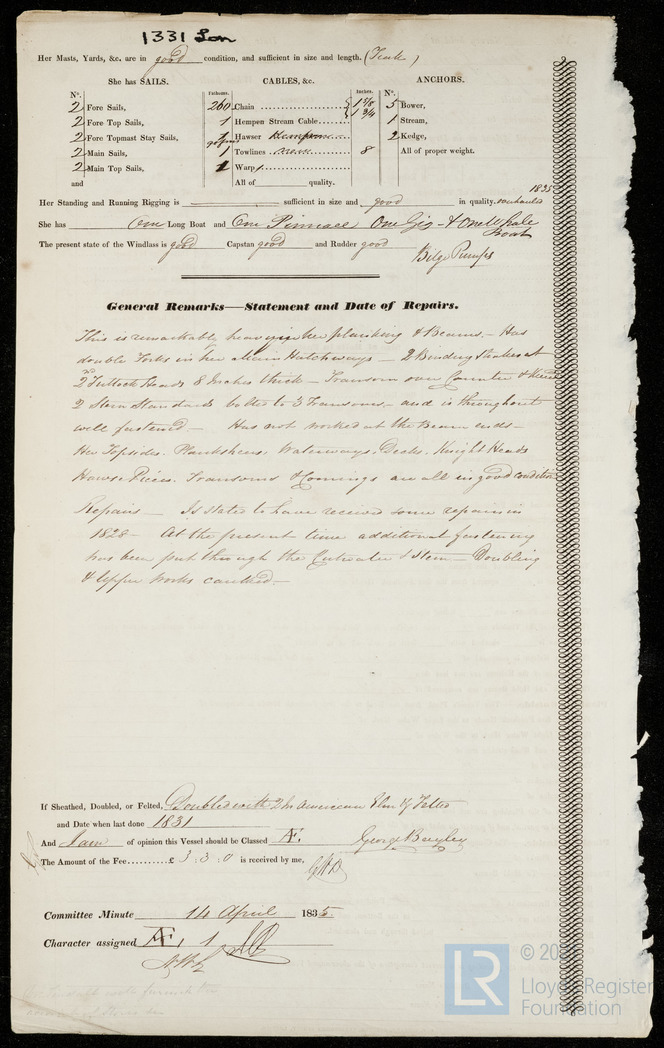 1331 Lon
Her Masts, Yards, &c. are in good condition, and sufficient in size and length. (Teak)
She has SAILS.
CABLES, &c.
ANCHORS.
N°.
2 Fore Sails,
2 Fore Top Sails,
2 Fore Topmast Stay Sails,
2 Main Sails,
2 Main Top Sails,
and
Fathoms.
Inches.
260 Chain 1 7/8 1 3/4
1 Hempen Stream Cable
1 Hawser
1 Towlines 8
1 Warp
All of quality.
N°.
3 Bower,
1 Stream,
2 Kedge,
All of proper weight.
Her Standing and Running Rigging is sufficient in size and good in quality. overhauled 1835
She has One Long Boat and One Pinnace One Gig & One Whale Boat
The present state of the Windlass is good Capstan good and Rudder good
Bilge Pumps
General Remarks—Statement and Date of Repairs.
This is remarkably heavy in her planking & Beams. — Has
double Forks in her Main Hatchways — 2 Binding Strakes at
2nd Futtock Heads 8 Inches thick — Transom over Counter &
2 Stern Standards bolted to 3 Transoms — and is throughout
well fastened — Has not worked at the Beam ends —
Her Topsides. Planksheers. Waterways. Decks. Knight Heads
Hawse Pieces. Transoms & Comings are all in good condition
Repairs — Is stated to have received some repairs in
1828 — At the present time additional fastening
has been put through the Cutwater & Stem — Doubling
& Upper works caulked —
If Sheathed, Doubled, or Felted, Doubled with 2 In American Elm & Felted
and Date when last done 1831
And I am of opinion this Vessel should be Classed Æ 1. George Bayley
The Amount of the Fee £ 3 : 3 : 0 is received by me,
GB
Committee Minute 14 April 1835.
Character assigned Æ, 1
© 20
Lloyd's Register
Foundation
LR